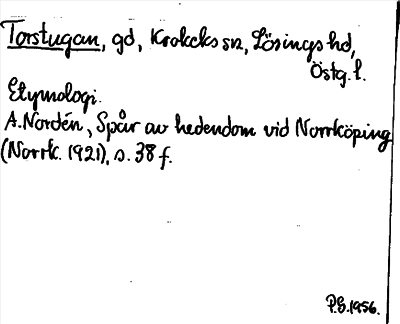 Torstugan, gd, Krokeks sn, Lösings hd,
Östg. l.
Etymologi.
A. Nordén, Spår av hedendom vid Norrköping
(Norrk. 1921), s. 38 f.
P.G. 1956.